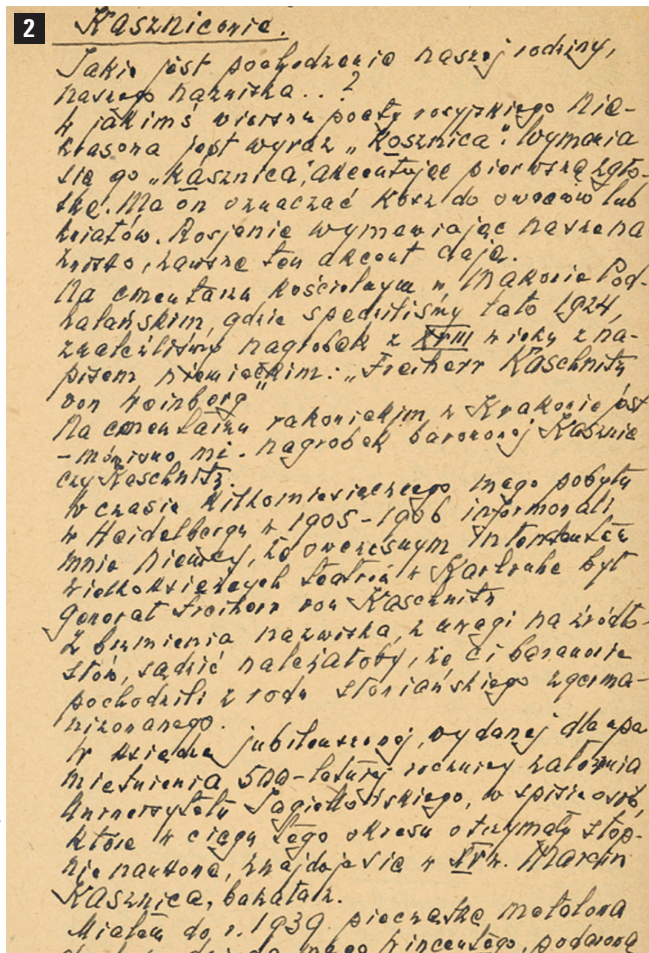 2
Kasznicowie.
Jakie jest pochodzenie naszej rodziny,
naszego nazwiska..?
W jakimś wierszu poety rosyjskiego Nie-
krasowa jest wyraz „Kosznica". Wymawia
się go „kasznica", akcentując pierwszą zgło-
skę. Ma on oznaczać kosz do owoców lub
kwiatów. Rosjanie wymawiając nasze na
zwisko, zawsze ten akcent dają.
Na cmentarzu kościelnym w Makowie Pod-
halańskim, gdzie spędziliśmy lato 1924,
znaleźliśmy nagrobek z XVIII wieku z na-
pisem niemieckim: „Freiherr Kaschnitz
von Weinberg"
Na cmentarzu rakowickim w Krakowie jest
- mówiono mi - nagrobek baronowej Kasznic
czy Kaschnitz.
W czasie kilkomiesięcznego mego pobytu
w Heidelbergu w 1905-1906 informowali
mnie Niemcy, że ówczesnym intendentem
wielkoksiężęcych teatrów w Karlsruhe był
generał Freiherr von Kaschnitz
Z brzmienia nazwiska, z uwagi na źródło-
słów, sądzić należałoby, że ci baronowie
pochodzili z rodu słowiańskiego zgerma-
nizowanego.
W księdze jubileuszowej, wydanej dla upa
miętnienia 500-letniej rocznicy założenia
Uniwersytetu Jagiellońskiego, w spisie osób,
które w ciągu tego okresu otrzymały stop-
nie naukowe, znajduje się w XV w. Marcin
Kasznica, bakałarz.
Miałem do r. 1939 pieczątkę metalową
mego Wincentego, podarowaną